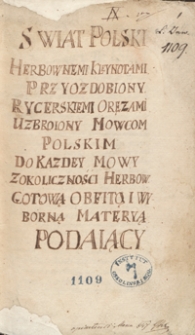 SWIAT POLSKI
HERBOWNEMI KLEYNOTAMI
PRZYOZDOBIONY
RYCERSKIEMI ORĘZAMI
UZBROIONY MOWCOM
POLSKIM
DO KAZDEY MOWY
ZOKOLICZNOŚCI HERBOW
GOTOWĄ OBFITĄ I WY
BORNĄ MATERYĄ
PODAIĄCY
1109
1109